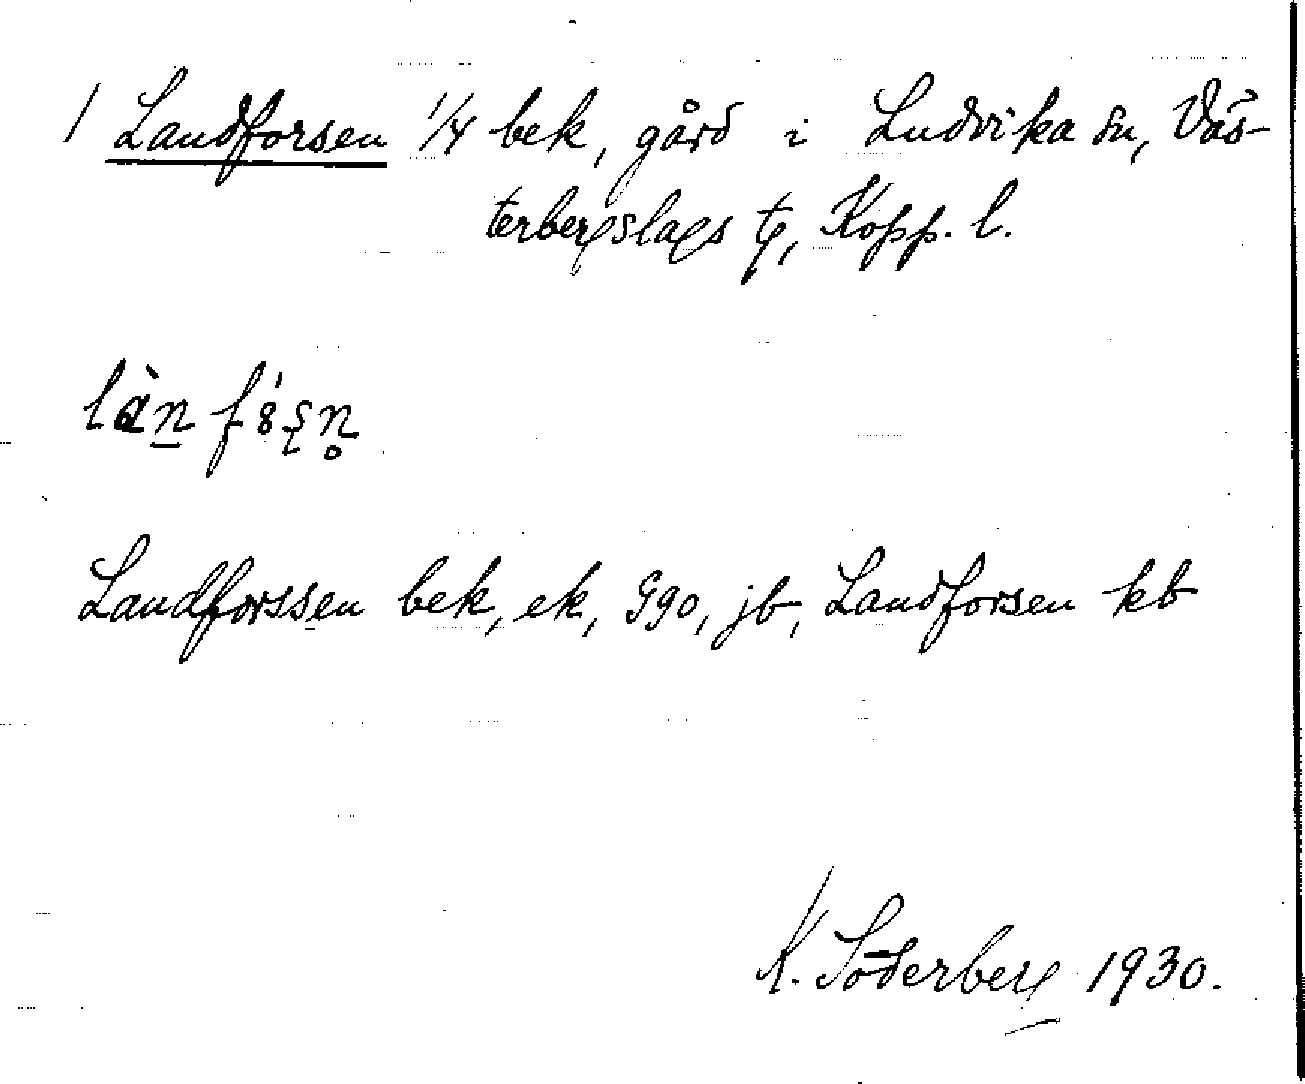 / Landforsen 1/4 bek, gård i Ludvika sn, Väs-
terbergslags tg, Kopp. l.
Landforssen bek, ek, Ggo, jb, Landforsen kb
K. Söderberg 1930.